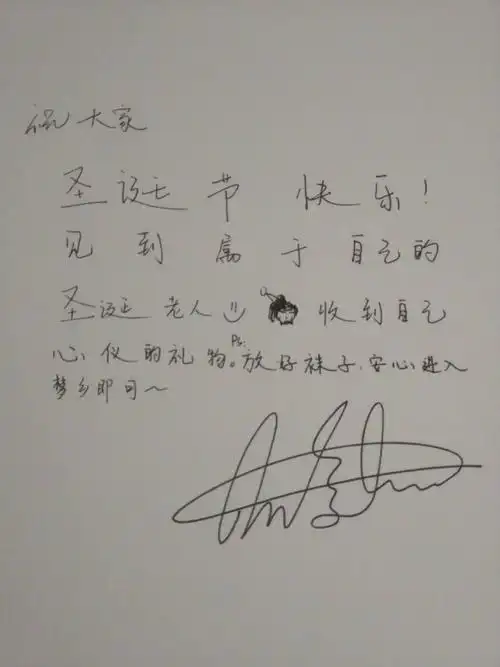 祝大家
圣诞节快乐!
见到属于自己的
圣诞老人 收到自己
心仪的礼物。Ps:放好袜子.安心进入
梦乡即可~